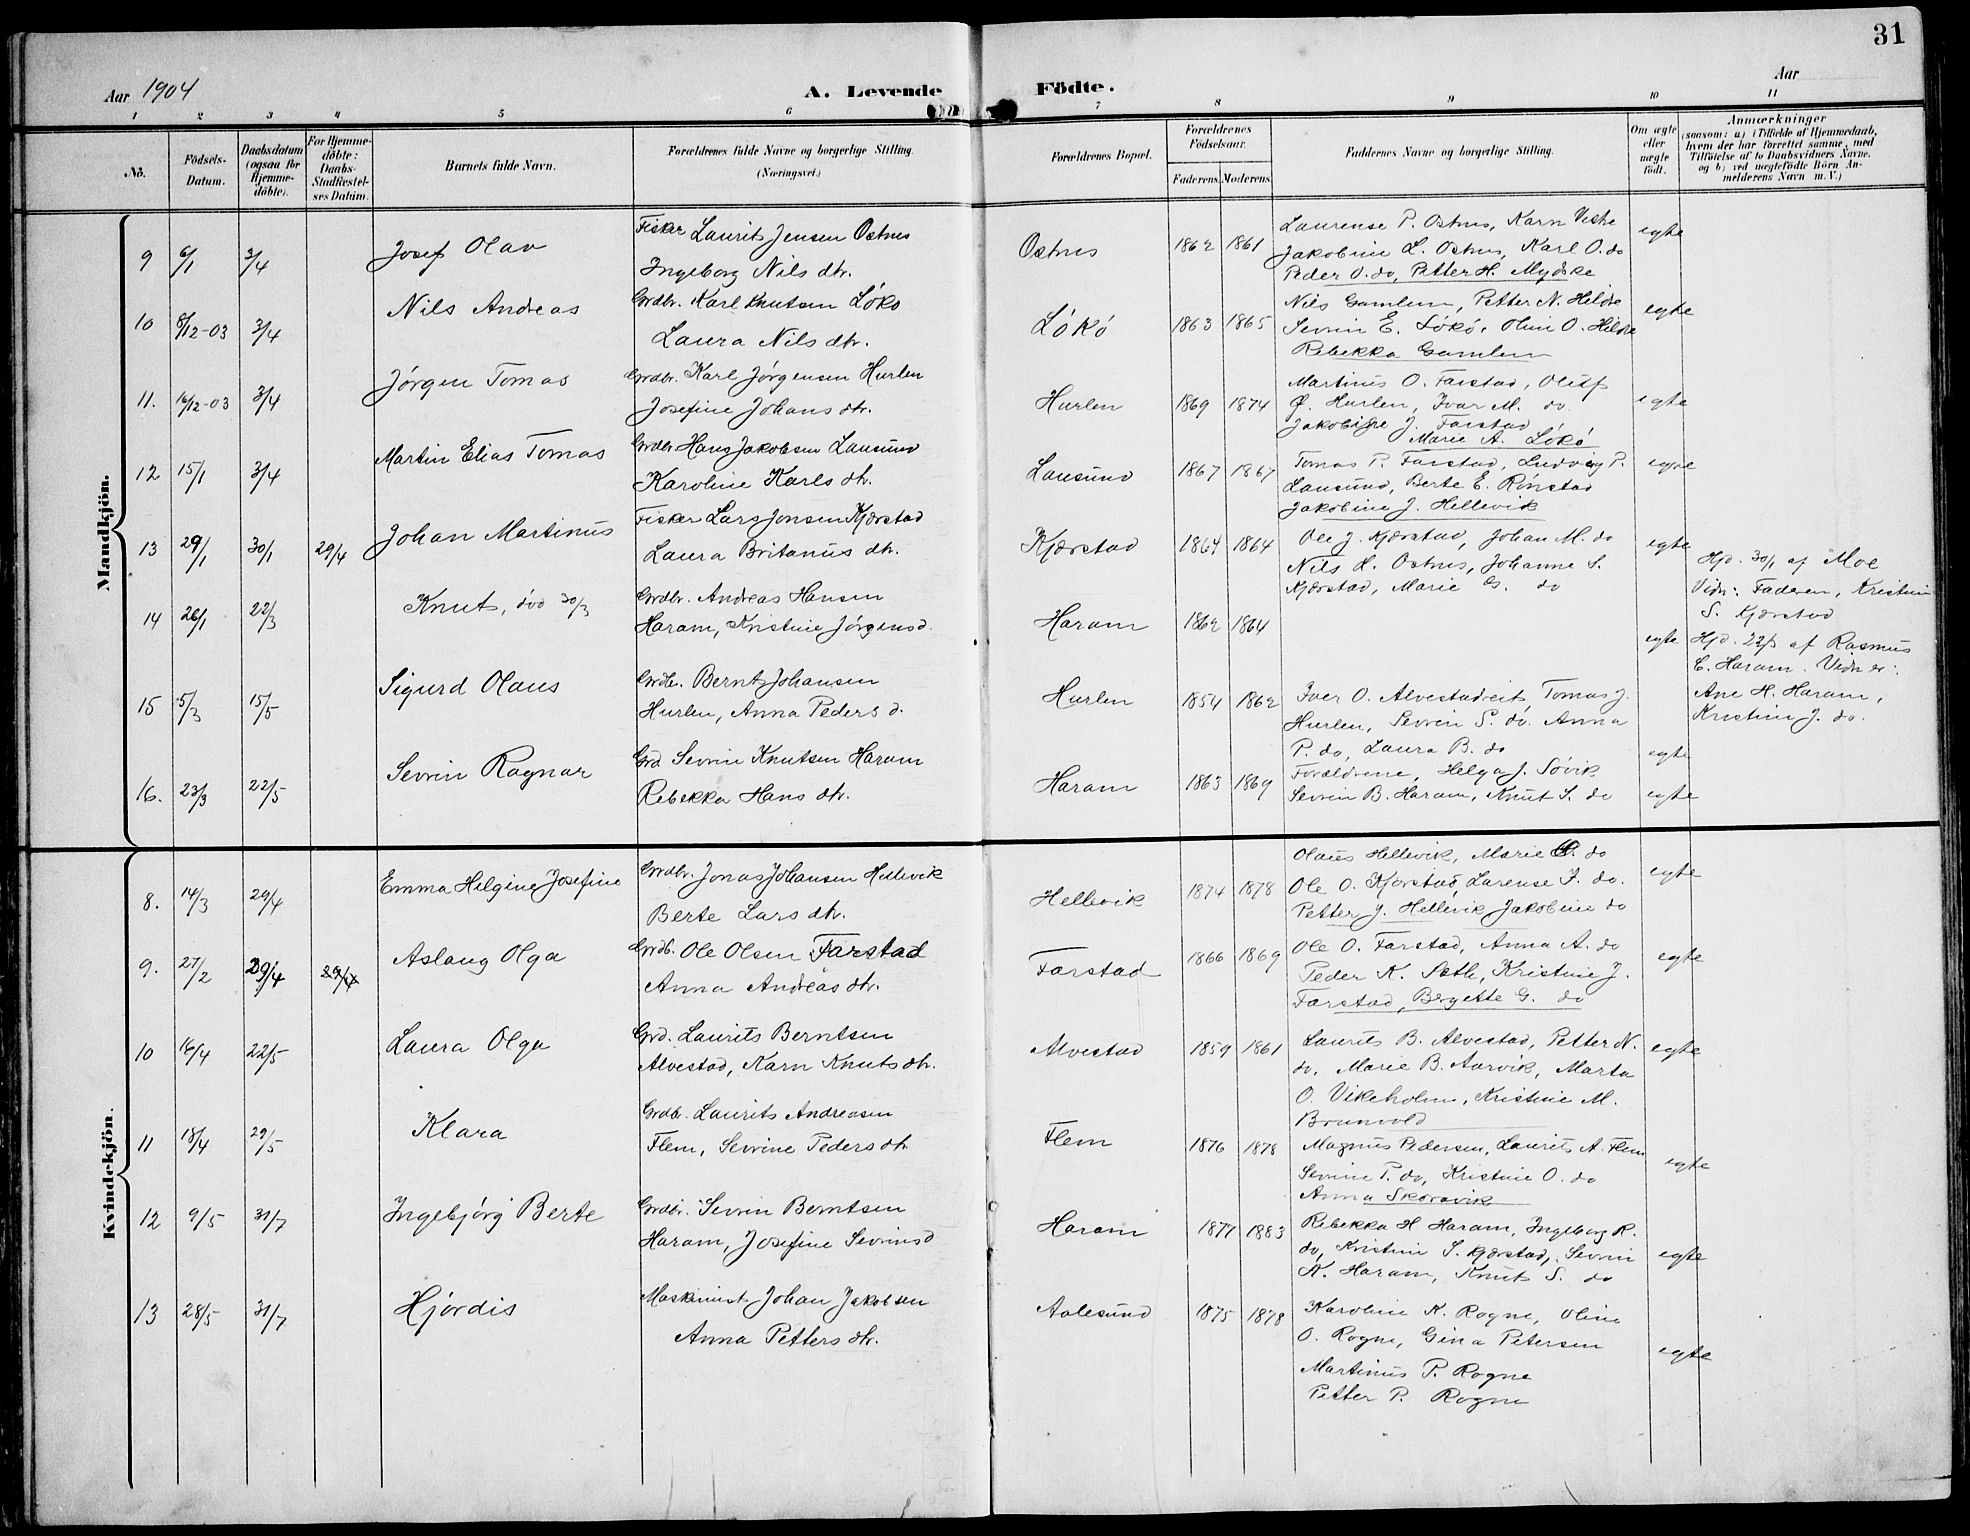 31
Aar 1904
A. Levende Födte.
Aar
1 2 3 4 5 6 7 8 9 10 11
No.
Födsels-Datum.
Daabsdatum (ogsaa for Hjemmedöbte).
For Hjemmedöbte: Daabs-Stadfæstelses Datum.
Barnets fulde Navn.
Forældrenes fulde Navne og borgerlige Stilling. (Næringsvei.)
Forældrenes Bopæl.
Forældrenes Födselsaar.
Faderens. Moderens.
Faddernes Navne og borgerlige Stilling.
Om ægte eller uægte födt.
Anmærkninger (saasom: a) i Tilfælde af Hjemmedaab, hvem der har forrettet samme, med Tilföielse af to Daabsvidners Navne, og b) ved uægtefödte Börn Anmelderens Navn m. V.)
Mandkjön.
9 6/1 3/4 Josef Olav
Fisker Laurits Jensen Ostnes
Ingeborg Nils dtr.
Ostnes 1862 1861
Laurense P. Ostnes, Karn Veste
Jakobine L. Ostnes, Karl O. do
Peder O. do, Petter H. Mydske
egte
10 8/12-03 3/4 Nils Andreas
Grdbr. Karl Knutsen Lökö
Laura Nils dtr.
Lökö 1863 1865
Nils Gamlem, Petter N. Hildre
Sevrin E. Lökö, Olin O. Hildre
Rebekka Gamlem
egte
11. 16/12-03 3/4 Jörgen Tomas
Grdbr. Karl Jörgensen Hurlen
Josefine Johans dtr.
Hurlen 1869 1874
Martinus O. Farstad, Oluf
Ø. Hurlen, Ivar M. do
Jakobine J. Farstad
Marie A. Lökö
egte
12 15/1 3/4 Martin Elias Tomas
Grdbr Hans Jakobsen Lausund
Karoline Karls dtr.
Lausund 1867 1867
Tomas P. Farstad, Ludvig P.
Lausund, Berte E. Rönstad
Jakobine J. Hellevik
egte
13 29/1 30/1 29/4 Johan Martinus
Fisker Lars Jonsen Kjærstad
Laura Britanus dtr.
Kjærstad 1864 1864
Ole J. Kjærstad, Johan M. do
Nils L. Ostnes, Johanne S.
Kjærstad, Marie G. do
egte
Hjd. 30/1 af Moe
Vidn: Faderen, Kristine
S. Kjærstad
14 26/1 22/3 Knut, död 30/3
Grdbr. Andreas Hansen
Haram, Kristine Jörgens d.
Haram 1862 1864
egte
Hjd. 22/3 af Rasmus
E. Haram. Vidner:
Ane H. Haram,
Kristine J. do.
15 5/3 15/5 Sigurd Olaus
Grdbr. Bernt Johansen
Hurlen, Anna Peders d.
Hurlen 1854 1862
Iver O. Alvestadveit, Tomas J.
Hurlen, Sevrin S. do. Anna
P. do, Laura B. do
egte
16. 23/3 22/5 Sevrin Ragnar
Grd. Sevrin Knutsen Haram
Rebekka Hans dtr.
Haram 1863 1869
Forældrene, Helga J. Sövik
Sevrin B. Haram, Knut S. do
egte
Kvindekjön.
8. 14/3 20/4 Emma Helgine Josefine
Grdbr. Jonas Johansen Hellevik
Berte Lars dtr.
Hellevik 1874 1878
Olaus Hellevik, Marie O. do
Ole O. Kjærstad, Larense J. do.
Petter J. Hellevik Jakobine do
egte
9. 27/2 29/4 29/4 Aslaug Olga
Grdb. Ole Olsen Farstad
Anna Andreas dtr.
Farstad 1866 1869
Ole O. Farstad, Anna A. do
Peder K. Sæth, Kristine J.
Farstad, Bergette G. do
egte
10 16/4 22/5 Laura Olga
Grd. Laurits Berntsen
Alvestad, Karn Knuts dtr.
Alvestad 1859 1861
Laurits B. Alvestad, Petter N.
do, Marie B. Aarvik, Marta
O. Vikeholm, Kristine M.
Brunvold
egte
11 18/4 29/5 Klara
Grdbr. Laurits Andreasen
Flem, Sevrine Peders dtr.
Flem 1876 1878
Magnus Pedersen, Laurits A. Flem
Sevrine P. do, Kristine O. do
Anna Skoravik
egte
12 9/5 31/7 Ingebjörg Berte
Grdbr. Sevrin Berntsen
Haram, Josefine Sevrins d
Haram 1877 1883
Rebekka H Haram, Ingeborg R.
do, Kristine S. Kjærstad, Sevrin
K. Haram, Knut S. do
egte
13 28/5 31/7 Hjördis
Maskinist Johan Jakobsen
Anna Petters dtr.
Aalesund 1875 1878
Karoline K. Rogne, Oline
O. Rogne, Gina Petersen
Martinus P. Rogne
Petter P. Rogne
egte